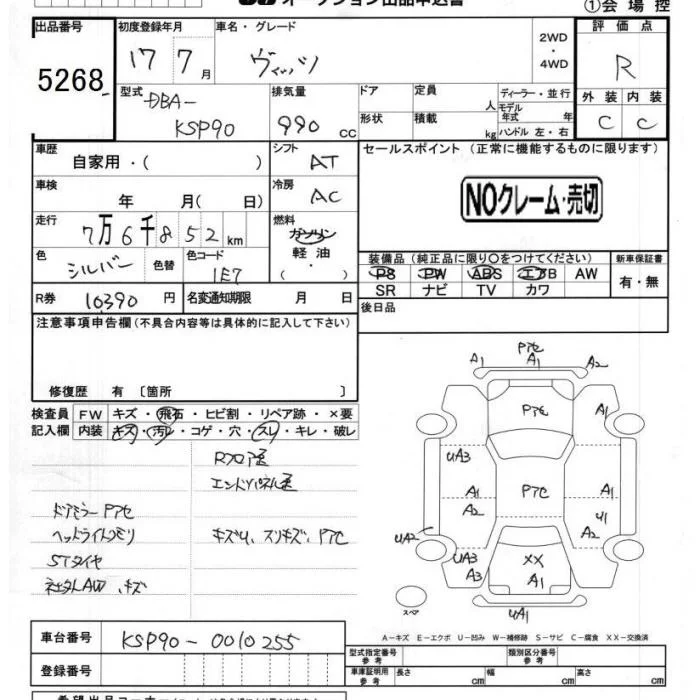 オークション出品申込書
①会場控
出品番号 初度登録年月 車名・グレード 2WD・4WD 評価点
5268 17 7月 ヴィッツ R
型式 DBA-KSP90 排気量 990 cc ドア 定員 人 ディーラー・並行 外装 内装
形状 積載 kg モデル年式 年 ハンドル 左・右 C C
車歴 自家用・( ) シフト AT セールスポイント (正常に機能するものに限ります)
車検 年 月( 日) 冷房 AC NOクレーム・売切
走行 7万6千852km 燃料 ガソリン 軽油 ・( )
色 シルバー 色替 色コード 1E7 装備品(純正品に限り○をつけてください) 新車保証書
PS PW ABS エアB AW 有・無
SR ナビ TV カワ
R券 10390円 名変通知期限 月 日 後日品
注意事項申告欄(不具合内容等は具体的に記入して下さい)
修復歴 有〔箇所 〕
検査員 FW キズ・飛石・ヒビ割・リペア跡・×要
記入欄 内装 キズ・汚レ・コゲ・穴・スレ・キレ・破レ
Rフロア歪
エンドパネル歪
ドアミラーP7セ
ヘッドライトクモリ キズU、スリキズ、P7セ
STタイヤ
社外AW、キズ
P7セ
A1 A1 A2
P7セ A1
UA3
A1 P7セ A1
A2 U1
UA2
UA3 XX A1
A3 A1
スペア UA1
A-キズ E-エクボ U-凹み W-補修跡 S-サビ C-腐食 XX-交換済
車台番号 KSP90-0010255
型式指定番号 参考 類別区分番号 参考
登録番号 車庫証明用 参考 長さ cm 幅 cm 高さ cm